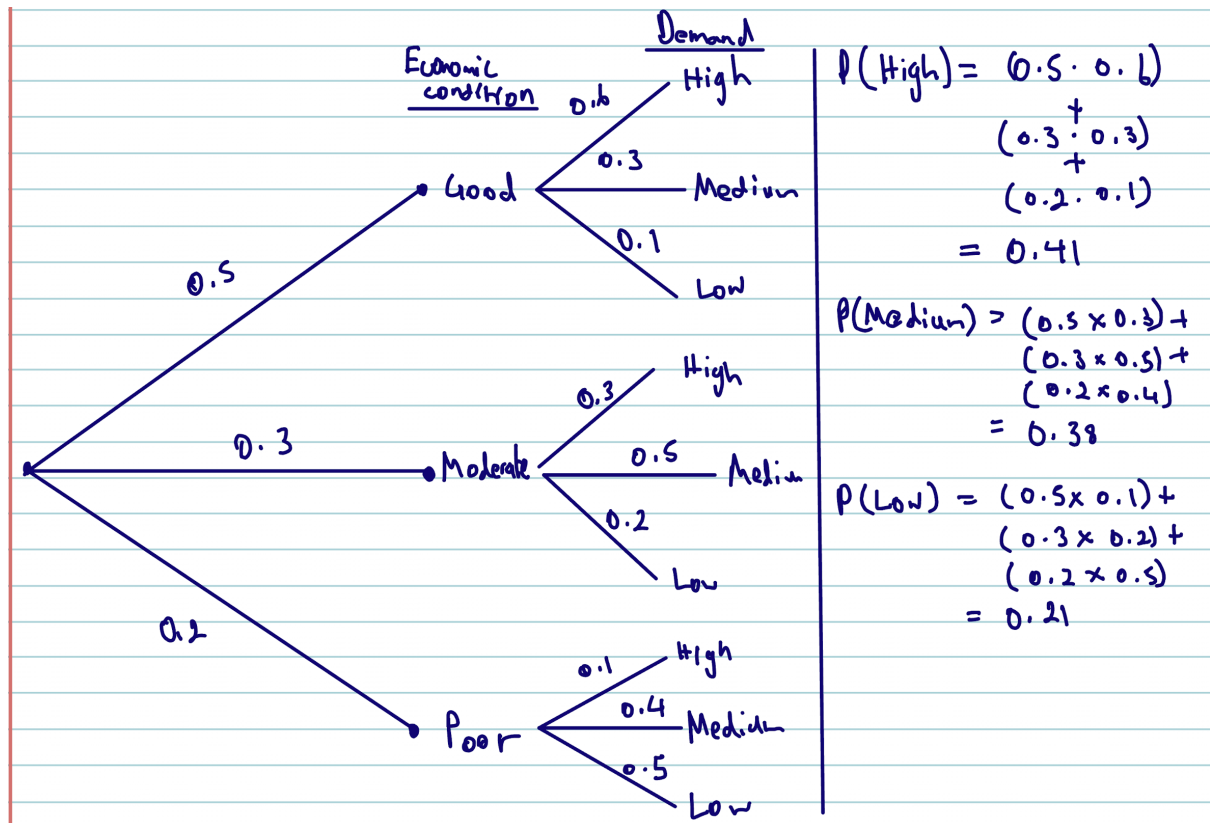 Economic
condition
Demand
0.5
Good
0.6
High
0.3
Medium
0.1
Low
0.3
Moderate
0.3
High
0.5
Medium
0.2
Low
0.2
Poor
0.1
High
0.4
Medium
0.5
Low
P(High) = (0.5 · 0.6)
+
(0.3 · 0.3)
+
(0.2 · 0.1)
= 0.41
P(Medium) = (0.5 × 0.3) +
(0.3 × 0.5) +
(0.2 × 0.4)
= 0.38
P(Low) = (0.5 × 0.1) +
(0.3 × 0.2) +
(0.2 × 0.5)
= 0.21